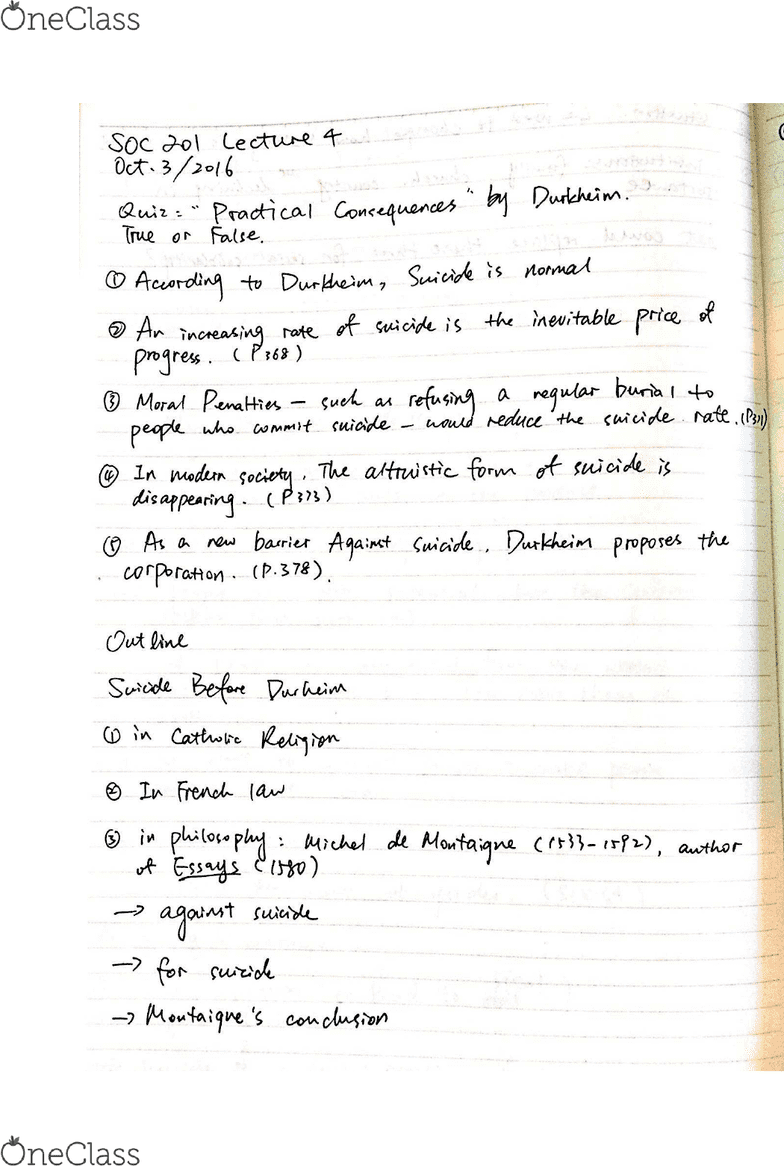 OneClass
SOC 201 Lecture 4
Oct. 3/2016
Quiz: "Practical Consequences" by Durkheim.
True or False.
① According to Durkheim, Suicide is normal
② An increasing rate of suicide is the inevitable price of
progress. (P368)
③ Moral Penalties – such as refusing a regular burial to
people who commit suicide – would reduce the suicide rate. (P371)
④ In modern society, The altruistic form of suicide is
disappearing. (P373)
⑤ As a new barrier Against suicide, Durkheim proposes the
corporation. (P.378).
Outline
Suicide Before Durheim
① in Catholic Religion
② In French law
③ in philosophy: Michel de Montaigne (1533-1592), author
of Essays (1580)
→ against suicide
→ for suicide
→ Montaigne's conclusion
OneClass